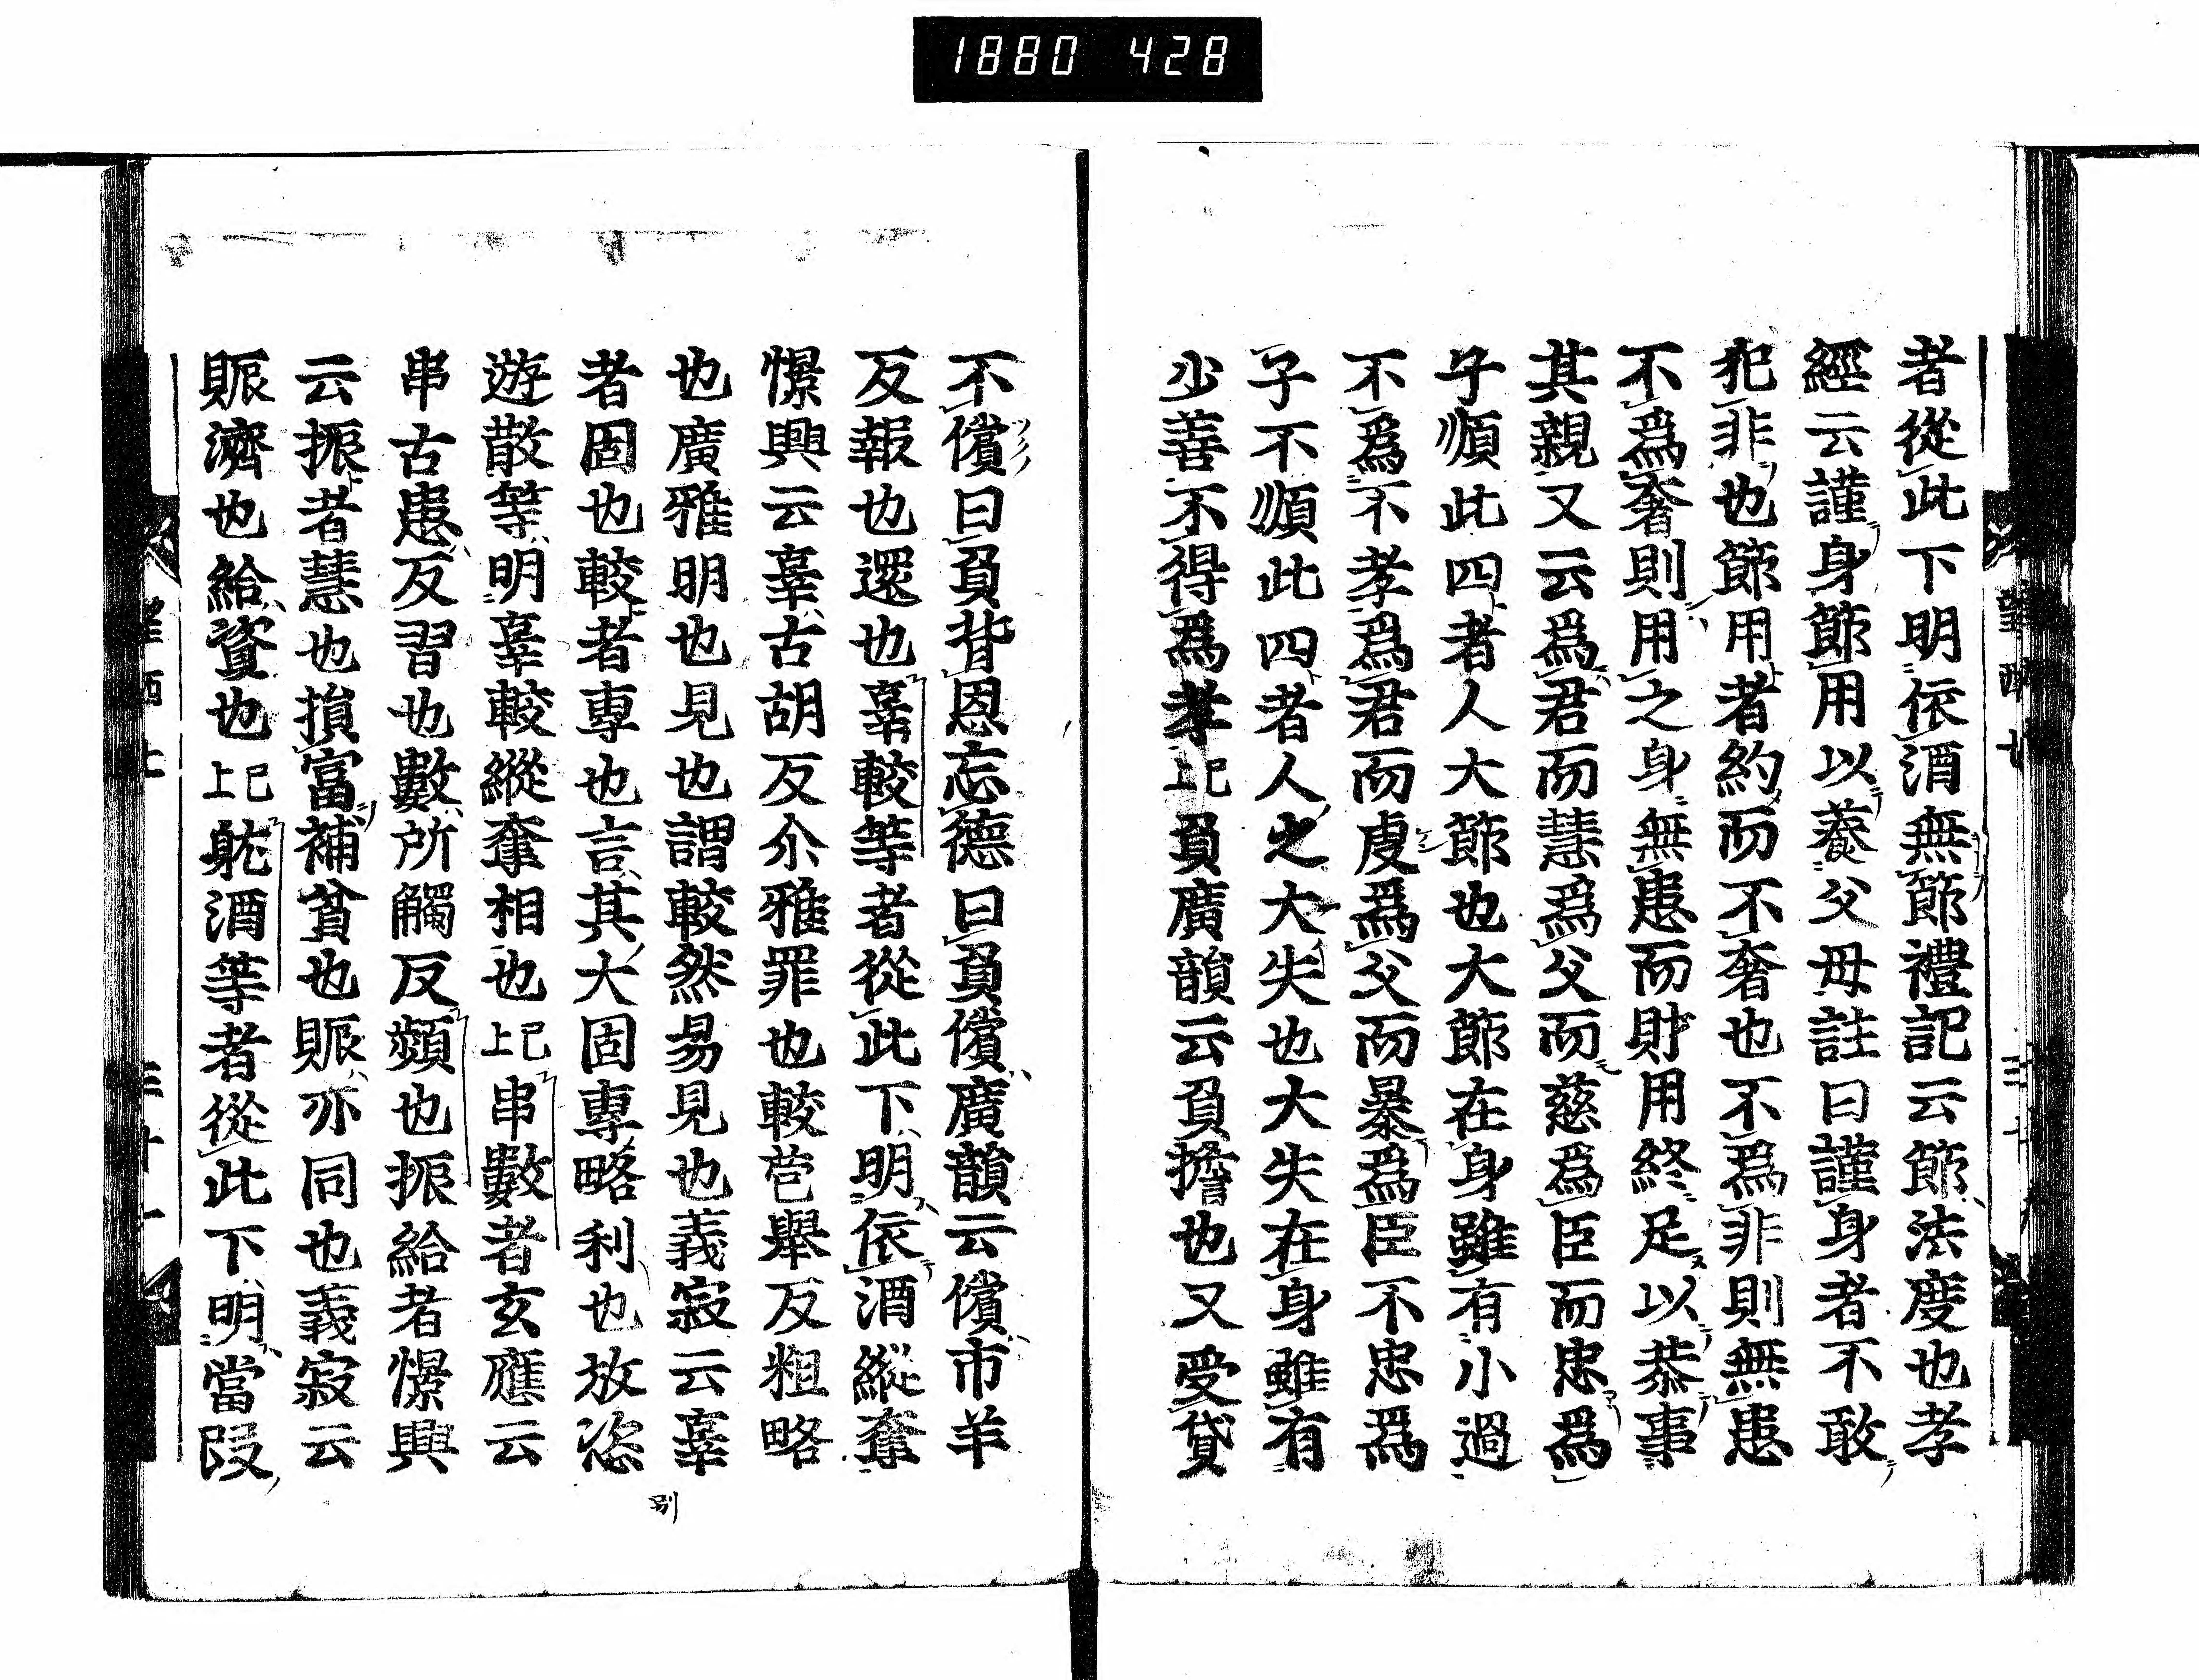 1880 428
者從此下明依酒無節禮記云節法度也孝
經云謹身節用以養父母註曰謹身者不敢
犯非也節用者約而不奢也不爲非則無患
不爲奢則用之身無患而財用終足以恭事
其親又云爲君而慧爲父而慈爲臣而忠爲
子順此四者人大節也大節在身雖有小過
不爲不孝爲君而虐爲父而暴爲臣不忠爲
子不順此四者人之大失也大失在身雖有
少善不得爲孝已上負廣韻云負擔也又受貸
不償曰負背恩忘德曰負償廣韻云償市羊
反報也還也辜較等者從此下明依酒縱奪
憬興云辜古胡反尒雅罪也較苞舉反粗略
也廣雅明也見也謂較然易見也義寂云辜
者固也較者專也言其大固專略利也放恣
遊散等明辜較縱奪相也已上串數者玄應云
串古患反習也數所觸反頻也振給者憬興
云振者慧也損富補貧也賑亦同也義寂云
賑濟也給資也已上躭酒等者從此下明當段
別